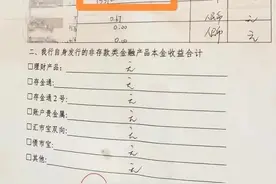 0.67 人民币 元
0.00 人民币 元
0.00
二、我行自身发行的非存款类金融产品本金收益合计
□理财产品： 元
□存金通： 元
□存金通2号： 元
□账户贵金属： 元
□汇市宝双向： 元
□债市宝： 元
□其他： 元